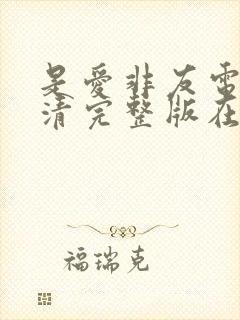 是爱非友电
清完整版在
福瑞克